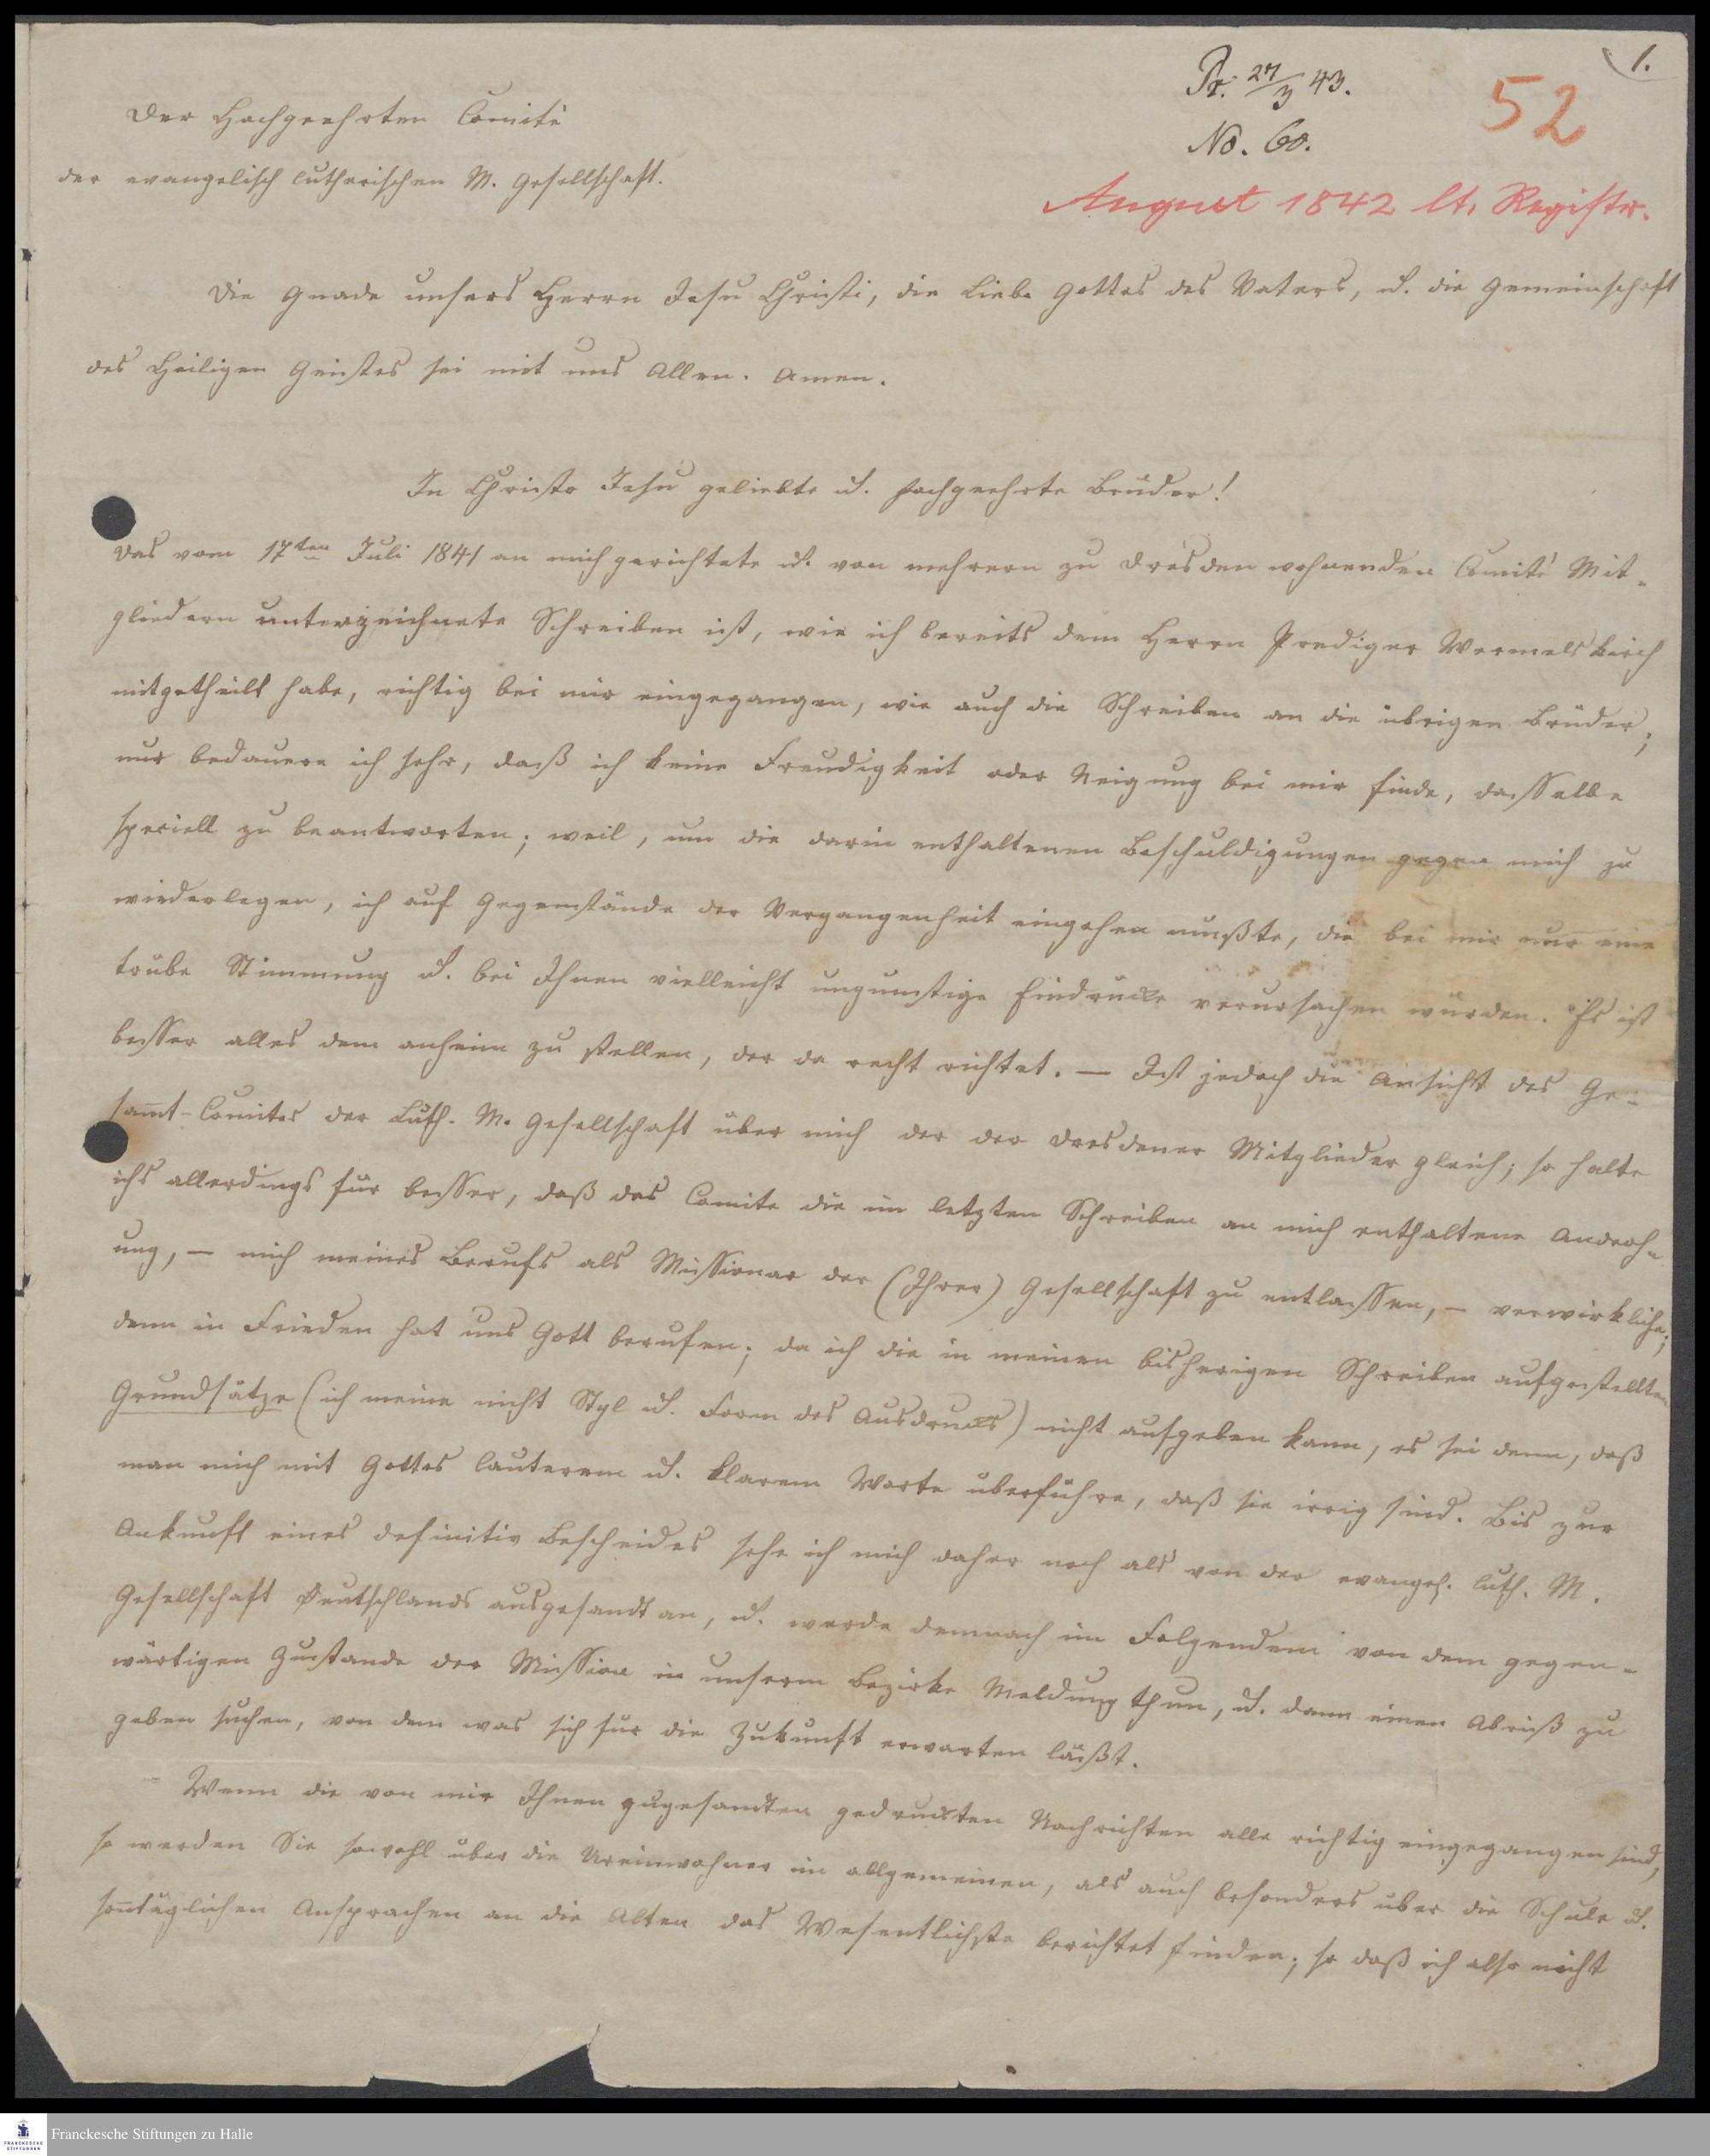 1.
Pr. 27/3 43.
52
Der Hochgeehrten Comité
No. 60.
der evangelisch lutherischen M. Gesellschaft.
August 1842 lt. Registr.
Die Gnade unsers Herrn Jesu Christi, die Liebe Gottes des Vaters, u. die Gemeinschaft
des Heiligen Geistes sei mit uns Allen. Amen.
In Christo Jesu geliebte u. hochgeehrte Brüder!
Das vom 17ten Juli 1841 an mich gerichtete u. von mehrern zu Dresden wohnenden Comité Mit-
gliedern unterzeichnete Schreiben ist, wie ich bereits dem Herrn Prediger Wermelskirch
mitgetheilt habe, richtig bei mir eingegangen, wie auch die Schreiben an die übrigen Brüder;
nur bedauere ich sehr, daß ich keine Freudigkeit oder Neigung bei mir finde, dasselbe
speciell zu beantworten; weil, um die darin enthaltenen Beschuldigungen gegen mich zu
wiederlegen, ich auf Gegenstände der Vergangenheit eingehen mußte, die bei mir nur eine
trübe Stimmung u. bei Ihnen vielleicht ungunstige Eindrucke verursachen würden. Es ist
besser alles dem anheim zu stellen, der da recht richtet. — Ist jedoch die Ansicht des Ge-
sam̅t-Comites der Luth. M. Gesellschaft über mich der der Dresdener Mitglieder gleich; so halte
ichs allerdings für besser, daß das Comite die im letzten Schreiben an mich enthaltene Androh-
ung, — mich meines Berufs als Missionar der (Ihrer) Gesellschaft zu entlassen, — verwirkliche;
denn in Frieden hat uns Gott berufen; da ich die in meinen bisherigen Schreiben aufgestellten
Grundsätze (ich meine nicht Styl u. Form des Ausdrucks) nicht aufgeben kann, es sei denn, daß
man mich mit Gottes lauterem u. klarem Worte überführe, daß sie irrig sind. Bis zur
Ankunft eines definitiv Bescheides sehe ich mich daher noch als von der evangel. luth. M.
Gesellschaft Deutschlands ausgesandt an, u. werde demnach im Folgendem von dem gegen-
wärtigen Zustande der Mission in unserm Bezirke Meldung thun, u. dann einen Abriß zu
geben suchen, von dem was sich für die Zukunft erwarten läßt.
Wenn die von mir Ihnen zugesandten gedruckten Nachrichten alle richtig eingegangen sind,
so werden Sie sowohl über die Ureinwohner im allgemeinen, als auch besonders über die Schule u.
son̅täglichen Ansprachen an die Alten das Wesentlichste berichtet finden; so daß ich also nicht
FRANCKESCHE
STIFTUNGEN
Franckesche Stiftungen zu Halle